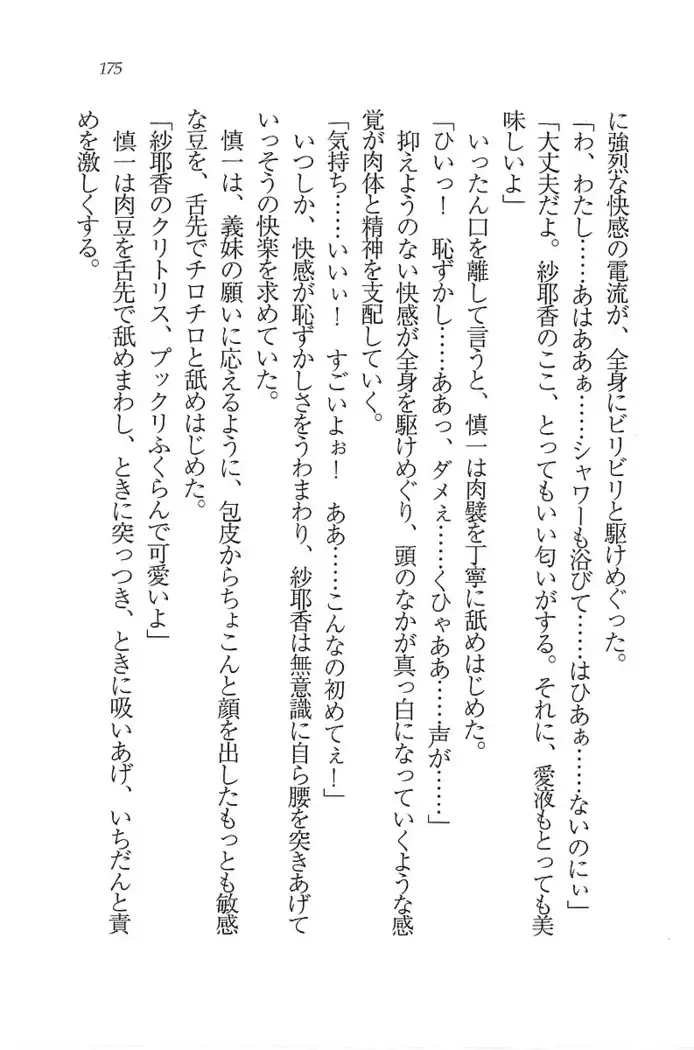 175
に強烈な快感の電流が、全身にビリビリと駆けめぐった。
「わ、わたし……あはああぁ……シャワーも浴びて……はひあぁ……ないのにぃ」
「大丈夫だよ。紗耶香のここ、とってもいい匂いがする。それに、愛液もとっても美
味しいよ」
いったん口を離して言うと、慎一は肉襞を丁寧に舐めはじめた。
「ひいっ！　恥ずかし……ああっ、ダメぇ……くひゃああ……声が……」
抑えようのない快感が全身を駆けめぐり、頭のなかが真っ白になっていくような感
覚が肉体と精神を支配していく。
「気持ち……いいぃ！　すごいよぉ！　ああ……こんなの初めてぇ！」
いつしか、快感が恥ずかしさをうわまわり、紗耶香は無意識に自ら腰を突きあげて
いっそうの快楽を求めていた。
慎一は、義妹の願いに応えるように、包皮からちょこんと顔を出したもっとも敏感
な豆を、舌先でチロチロと舐めはじめた。
「紗耶香のクリトリス、プックリふくらんで可愛いよ」
慎一は肉豆を舌先で舐めまわし、ときに突っつき、ときに吸いあげ、いちだんと責
めを激しくする。